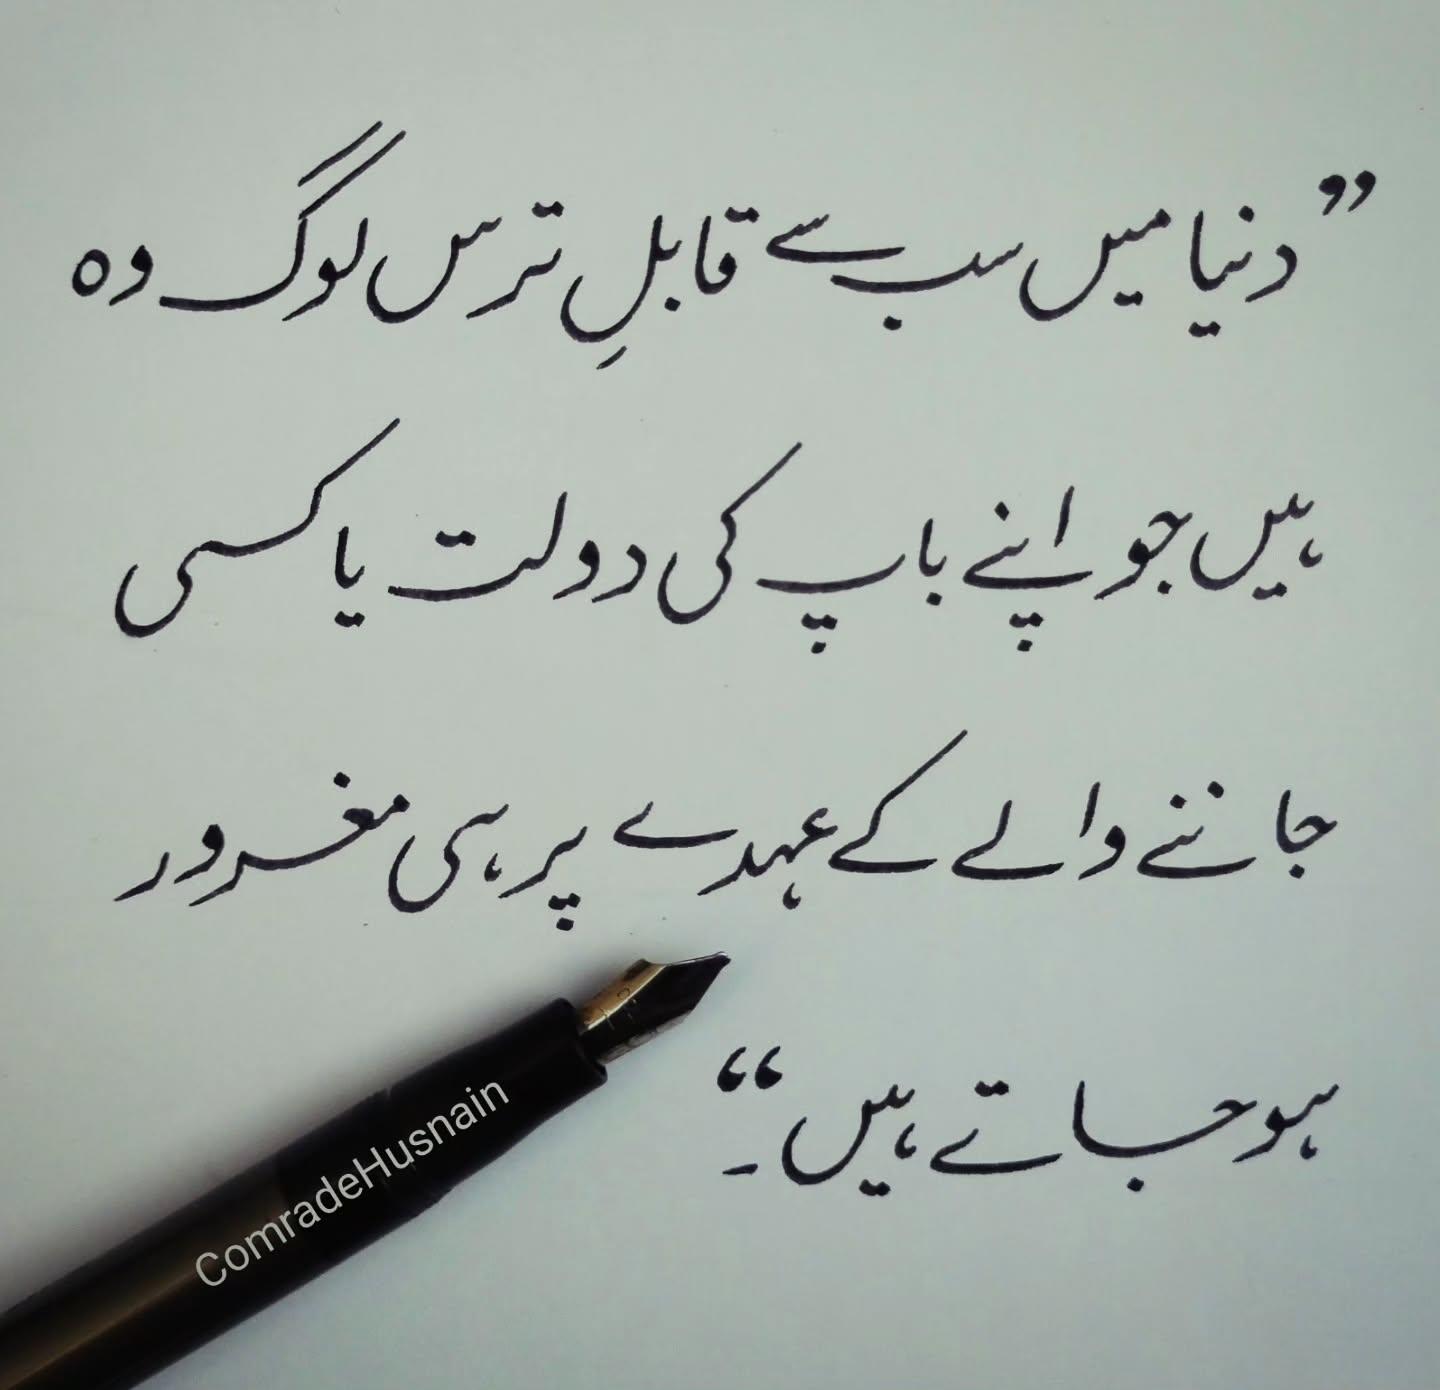 ”دنیا میں سب سے قابلِ ترس لوگ وہ
ہیں جو اپنے باپ کی دولت یا کسی
جاننے والے کے عہدے پر ہی مغرور
ہو جاتے ہیں۔“
ComradeHusnain